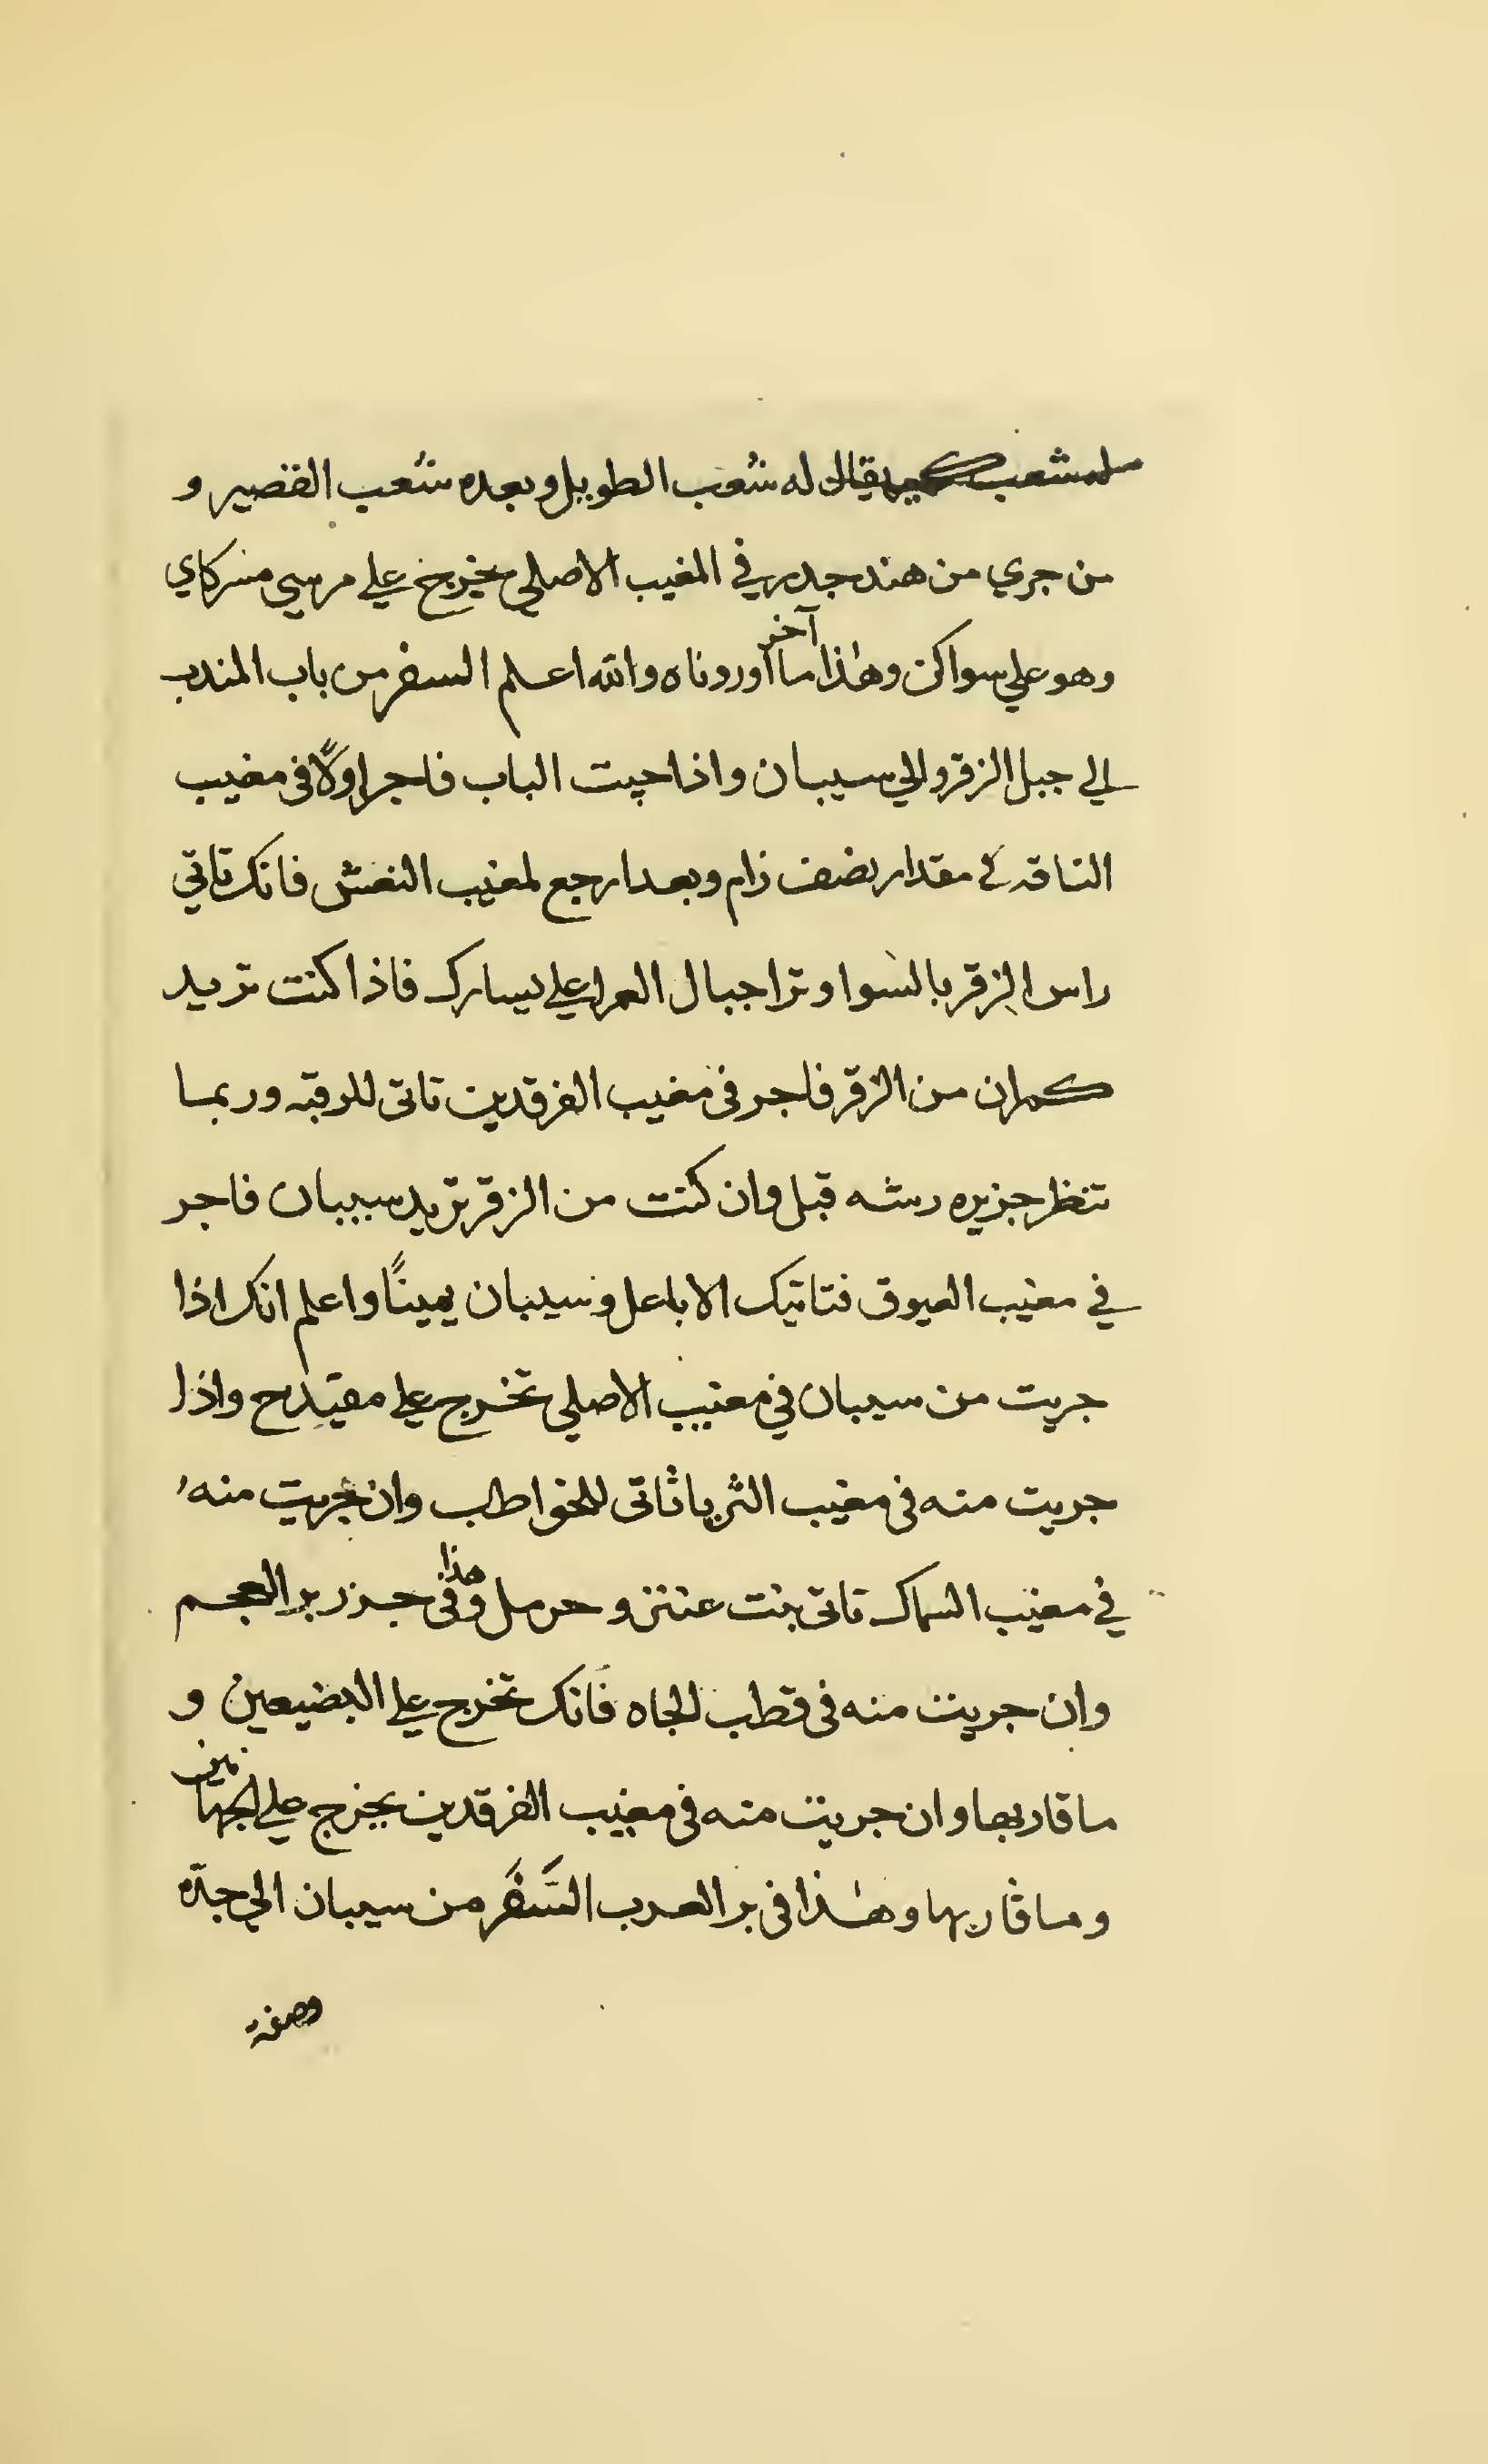 يقال له شعب الطويل وبعده شعب القصير و
من جري من هند جدير في المغيب الاصلي يخرج علي مرسي
وهو علي سواكن وهذا ما آخر اوردناه والله اعلم السفر من باب المندب
الي جبل الزقر والي سيبان واذا جيت الباب فاجر اولًا في مغيب
الناقه في مقدار نصف زام وبعد ارجع لمغيب النعش فانك تاتي
راس الزقر بالسوا وترا جبال العمرا علي يسارك فاذا كنت تريد
كمران من الزقر فاجر في مغيب الفرقدين تاتي للرقبه وربما
تنظر جزيره رشه قبل وان كنت من الزقر تريد سيبان فاجر
في مغيب العيوق فتاتيك الاباعل وسيبان يمينًا واعلم انك اذا
جريت من سيبان في مغيب الاصلي تخرج علي مقيدح واذا
جريت منه في مغيب الثريا تاتي للخواطب وان جريت منه
في مغيب السماك تاتي بنت عنتز و حرمل وهذا في جزر بر العجم
وان جريت منه في قطب الجاه فانك تخرج علي البضيعين و
ما قاربها وان جريت منه في مغيب الفرقدين يخرج علي
وما قاربها وهذا في بر العرب السَّفَر من سيبان الي جدّه
وصفة